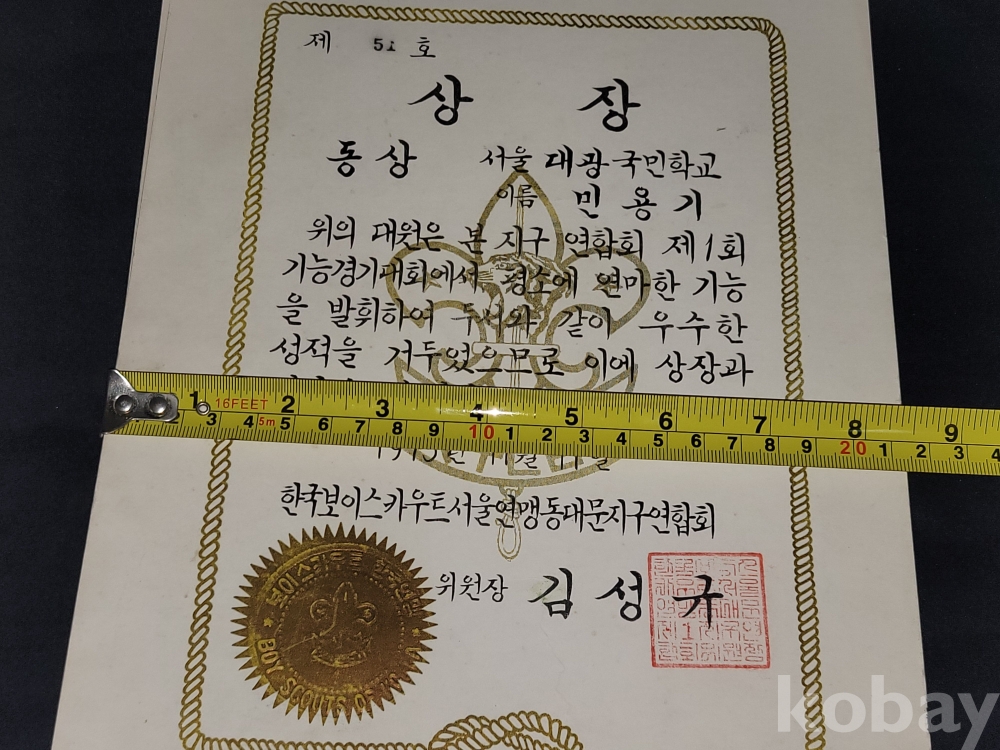 제 51 호
상 장
동상 서울 대광국민학교
이름 민용기
위의 대원은 본 지구 연합회 제1회
기능경기대회에서 평소에 연마한 기능
을 발휘하여 두서와 같이 우수한
성적을 거두었으므로 이에 상장과
1 2 3 4 5 6 7 8 9
16FEET
3 4 5m 5 6 7 8 9 10 1 2 3 4 5 6 7 8 9 20 1 2 3 4
11월 11일
한국보이스카우트서울연맹동대문지구연합회
위원장 김성규
보이스카우트
BOY SCOUTS OF
kobay